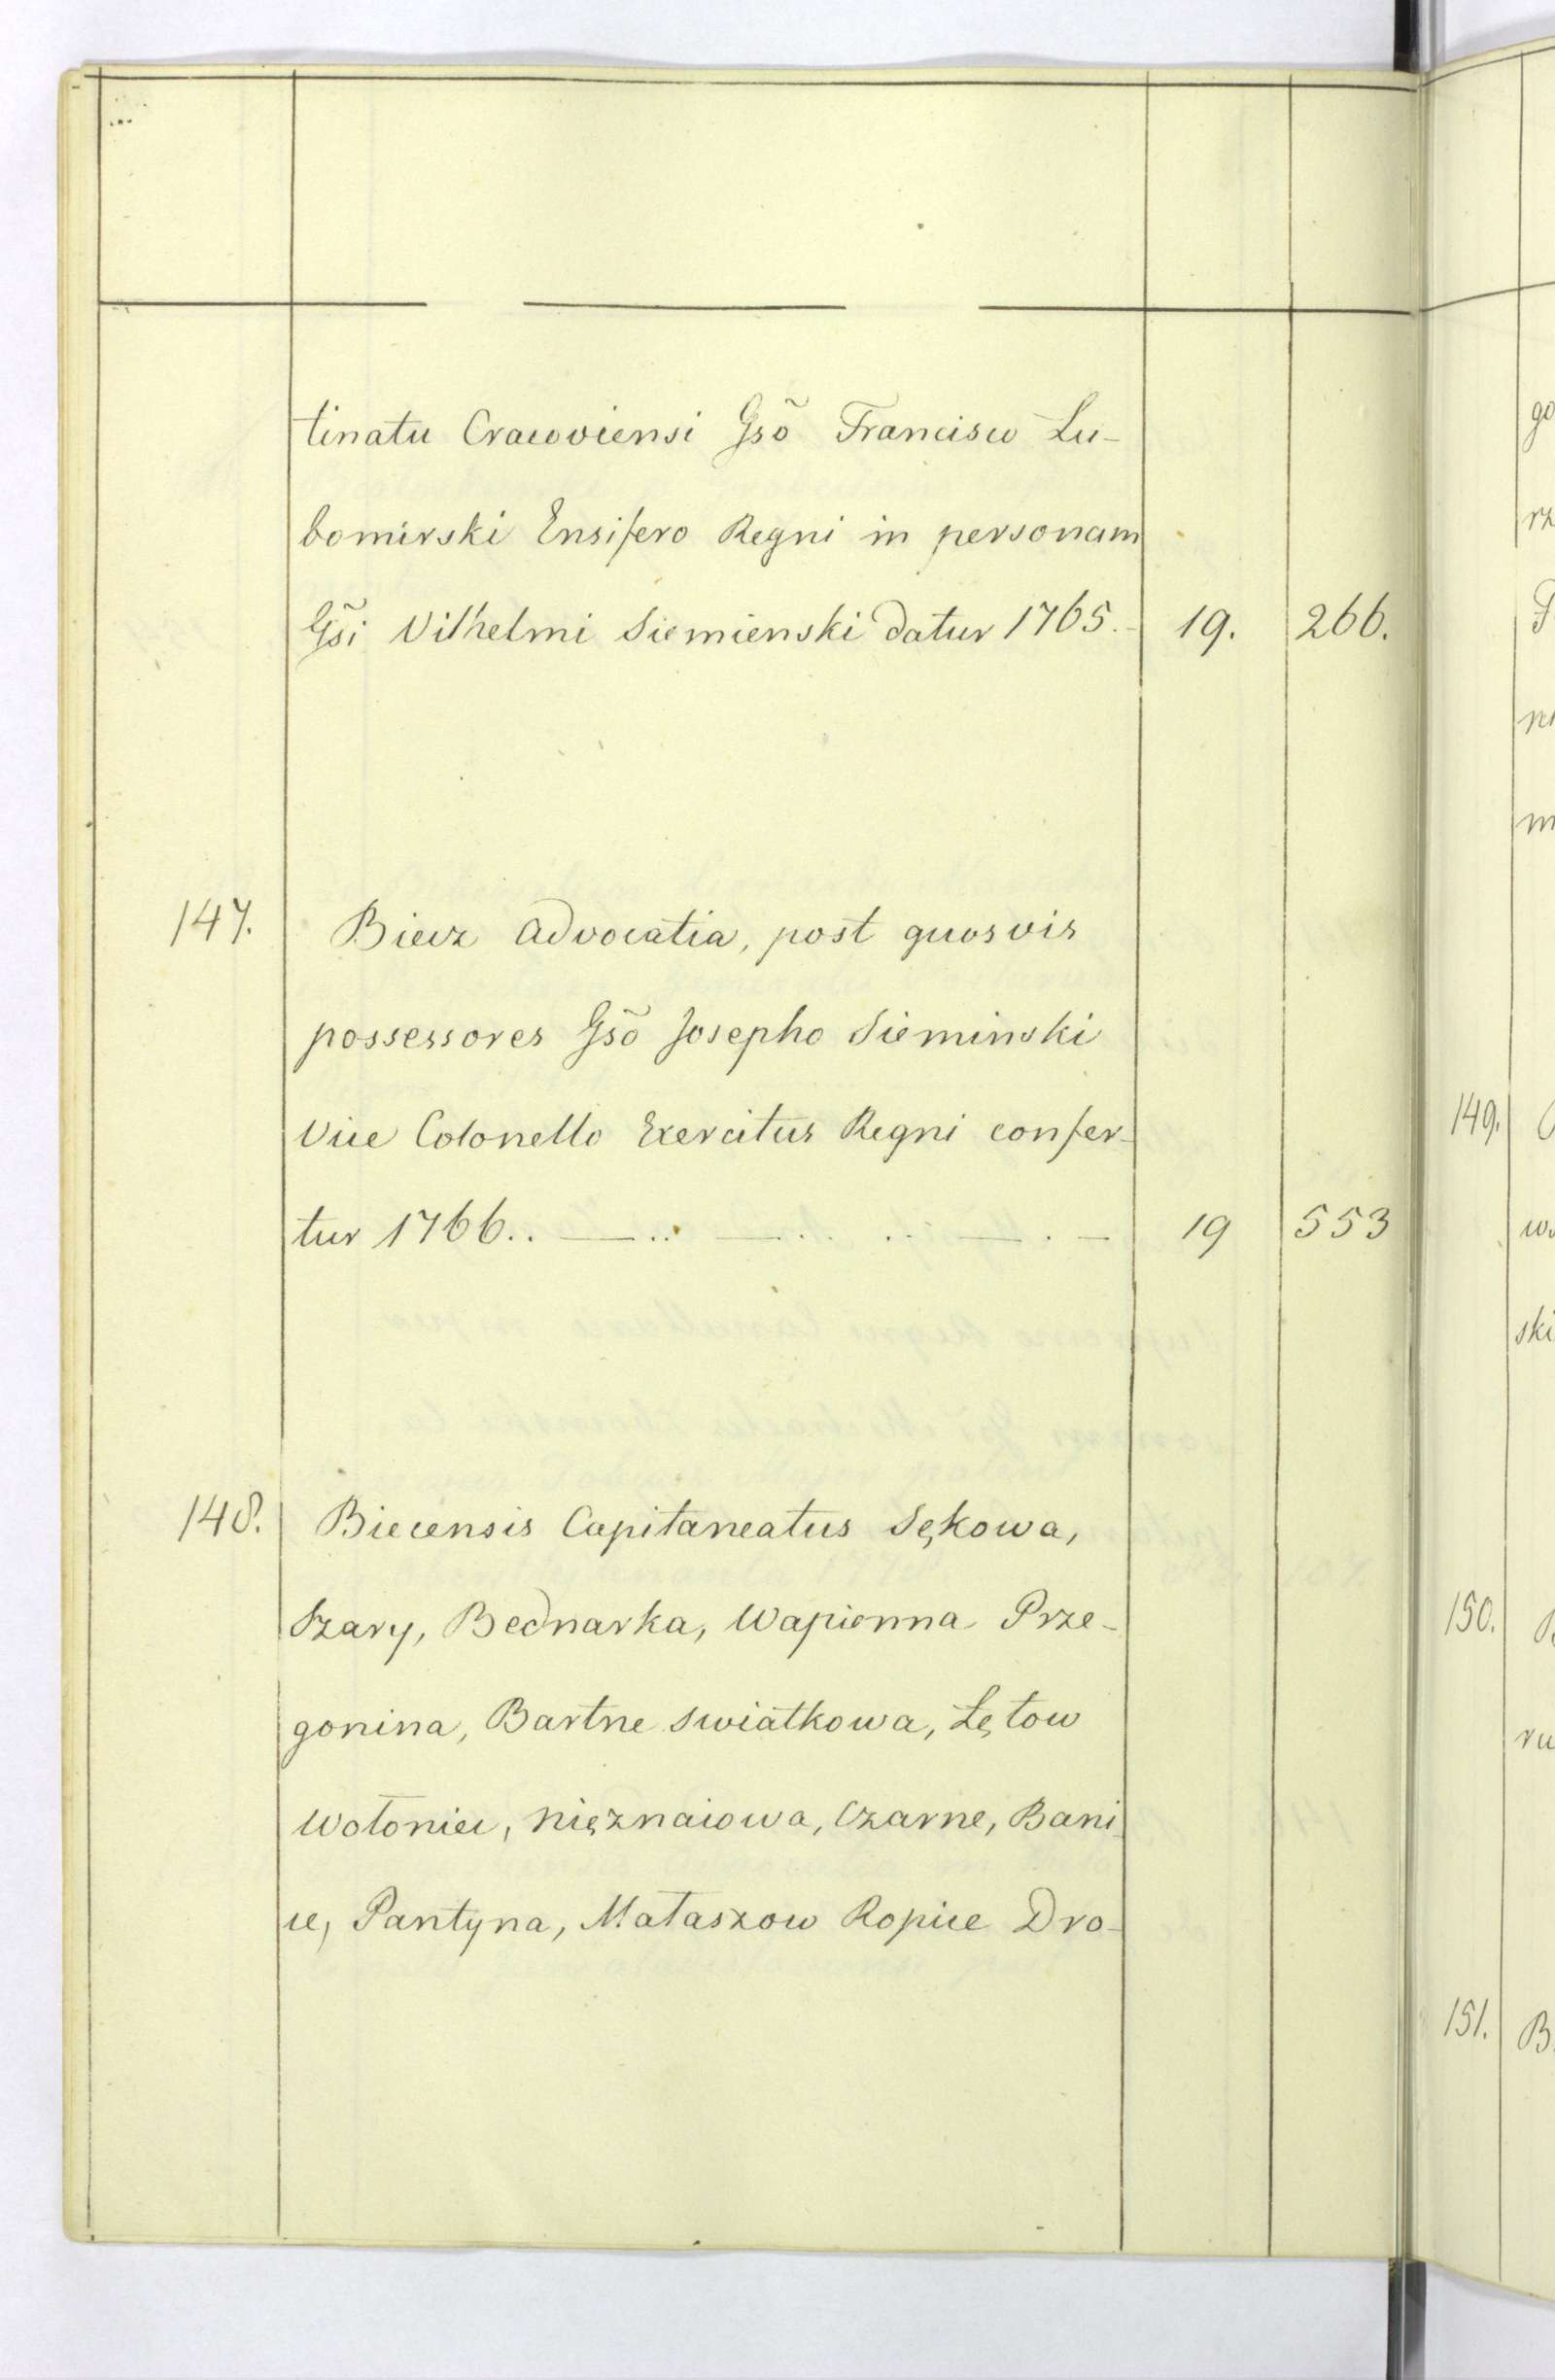 tinatu Cracoviensi Gsõ Francisco Lu-
bomirski Ensifero Regni in personam
Gs̃i Vilhelmi Siemienski datur 1765. 19. 266.
147. Biecz advocatia, post quosvis
possessores Gsõ Josepho Sieminski
Vice Colonello Exercitus Regni confer-
tur 1766. 19 553
148. Biecensis Capitaneatus Sękowa,
Szary, Bednarka, Wapienna Prze-
gonina, Bartne Swiatkowa, Łętow
Wołoniec, Nięznaiowa, Czarne, Bani-
ce, Pantyna, Mataszow Ropice Dro-
go
rz
ski
149.
150.
ru
151. B